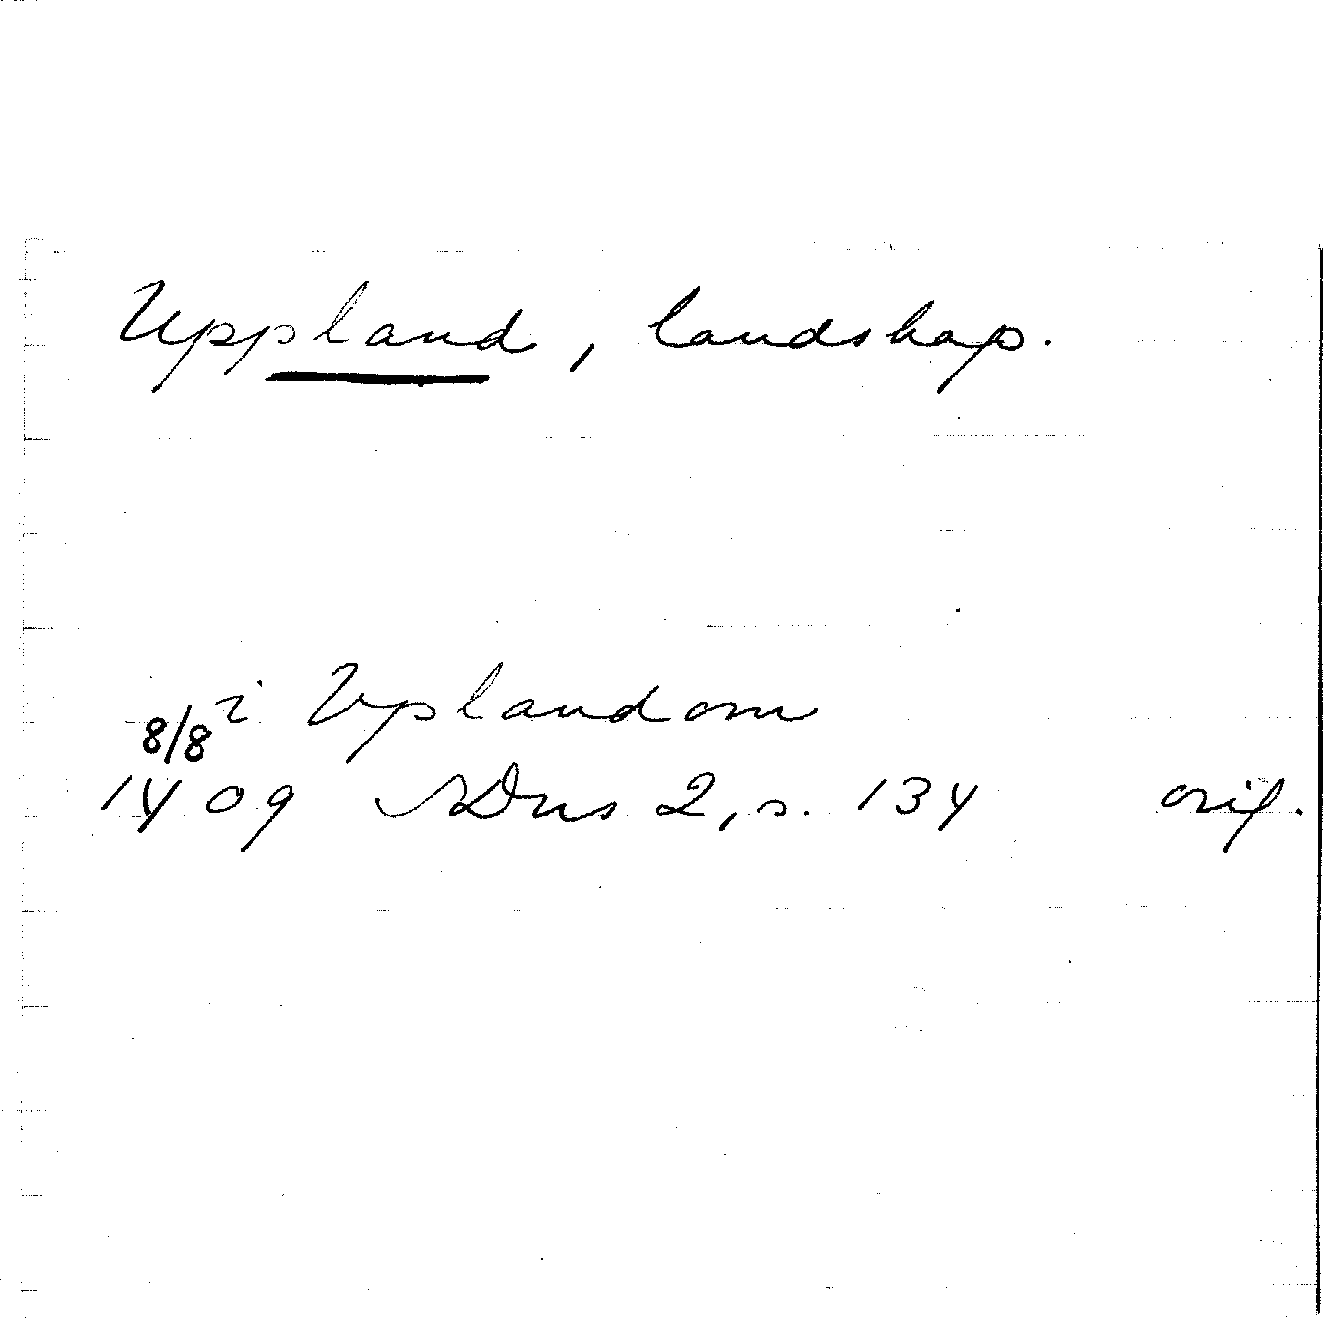 Uppland, landskap.
i Uplandom
8/8
1409 SDns 2, s. 134 orig.